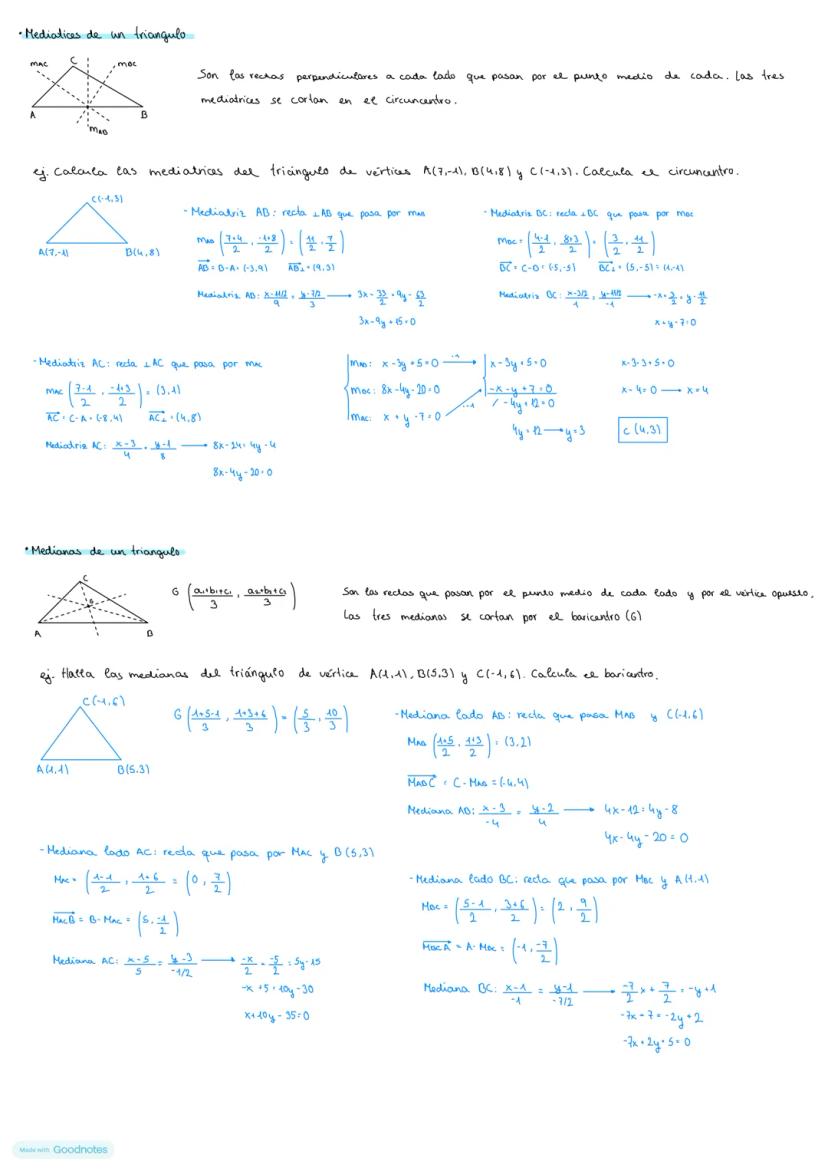 • Mediatices de un triangulo
mAC C mBC
A B
mAB
Son las rectas perpendiculares a cada lado que pasan por el punto medio de cada. Las tres
mediatrices se cortan en el circuncentro.
ej. Calcula las mediatrices del triángulo de vértices A(7,-1), B(4,8) y C(-1,3). Calcula el circuncentro.
C(-1,3)
A(7,-1) B(4,8)
- Mediatriz AB: recta ⊥AB que pasa por mAB
mAB (7+4/2, -1+8/2) = (11/2, 7/2)
AB = B-A = (-3,9) AB⊥ = (9,3)
Mediatriz AB: x-11/2/9 = y-7/2/3 → 3x - 33/2 = 9y - 63/2
3x-9y+15=0
- Mediatriz BC: recta ⊥BC que pasa por mBC
mBC = (4-1/2, 8+3/2) = (3/2, 11/2)
BC = C-B = (-5,-5) BC⊥ = (5,-5) = (1,-1)
Mediatriz BC: x-3/2/1 = y-11/2/-1 → -x+3/2 = y-11/2
x+y-7=0
- Mediatriz AC: recta ⊥AC que pasa por mAC
mAC (7-1/2, -1+3/2) = (3,1)
AC = C-A = (-8,4) AC⊥ = (4,8)
Mediatriz AC: x-3/4 = y-1/8 → 8x-24 = 4y-4
8x-4y-20=0
mAB: x-3y+5=0 ·1 → x-3y+5=0
mBC: 8x-4y-20=0 -x-y+7=0
mAC: x+y-7=0 ·-1 / -4y+12=0
4y=12 → y=3
x-3·3+5=0
x-4=0 → x=4
C (4,3)
• Medianas de un triangulo
C
G
A B
G (a₁+b₁+c₁/3, a₂+b₂+c₂/3)
Son las rectas que pasan por el punto medio de cada lado y por el vértice opuesto.
Las tres medianas se cortan por el baricentro (G)
ej. Halla las medianas del triángulo de vértice A(1,1), B(5,3) y C(-1,6). Calcula el baricentro.
C(-1,6)
A(1,1) B(5,3)
G (1+5-1/3, 1+3+6/3) = (5/3, 10/3)
- Mediana lado AB: recta que pasa MAB y C(-1,6)
MAB (1+5/2, 1+3/2) = (3,2)
MABC = C-MAB = (-4,4)
Mediana AB: x-3/-4 = y-2/4 → 4x-12=4y-8
4x-4y-20=0
- Mediana lado AC: recta que pasa por MAC y B(5,3)
MAC = (1-1/2, 1+6/2 = (0, 7/2)
MACB = B-MAC = (5, -1/2)
Mediana AC: x-5/5 = y-3/-1/2 → -x/2 - -5/2 = 5y-15
-x+5=10y-30
x+10y-35=0
- Mediana lado BC: recta que pasa por MBC y A(1,1)
MBC = (5-1/2, 3+6/2) = (2, 9/2)
MBCA = A-MBC = (-1, -7/2)
Mediana BC: x-1/-1 = y-1/-7/2 → -7/2 x + 7/2 = -y+1
-7x+7=-2y+2
-7x+2y+5=0
Made with Goodnotes